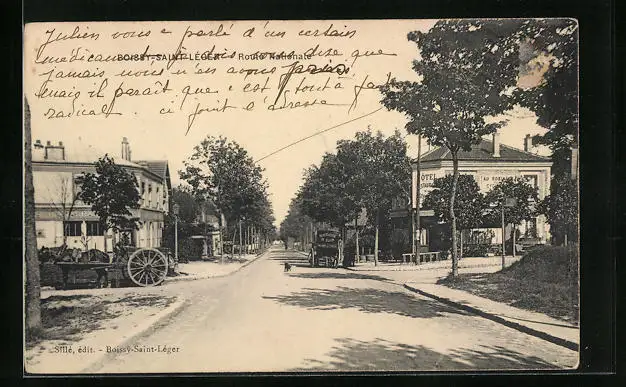 Julien vous a parlé d'un certain
médicament je dois vous dire que
BOISSY-SAINT-LÉGER - Route Nationale
jamais nous n'en avons parlé
mais il paraît que c'est tout à fait
radical. ci joint l'adresse
HÔTEL
AU
Sillé, édit. - Boissy-Saint-Léger